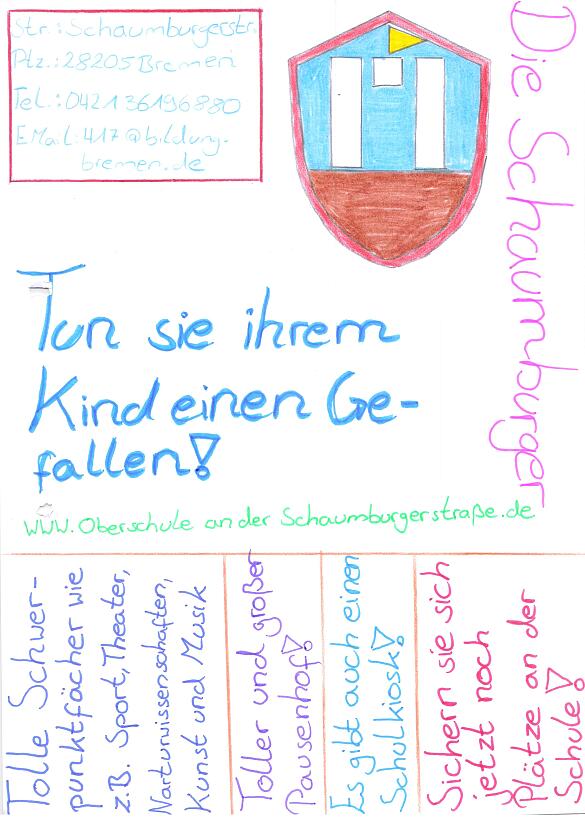 Str.: Schaumburgerstr.
Plz.: 28205 Bremen
Tel.: 0421 36196880
EMail: 417@bildung.
bremen.de
Die Schaumburger
Tun sie ihrem
Kind einen Ge-
fallen!
www.Oberschule an der Schaumburgerstraße.de
Tolle Schwer-
punktfächer wie
z.B. Sport, Theater,
Narturwissenschaften,
Kunst und Musik
Toller und großer
Pausenhof!
Es gibt auch einen
Schulkiosk!
Sichern sie sich
jetzt noch
Plätze an der
Schule!